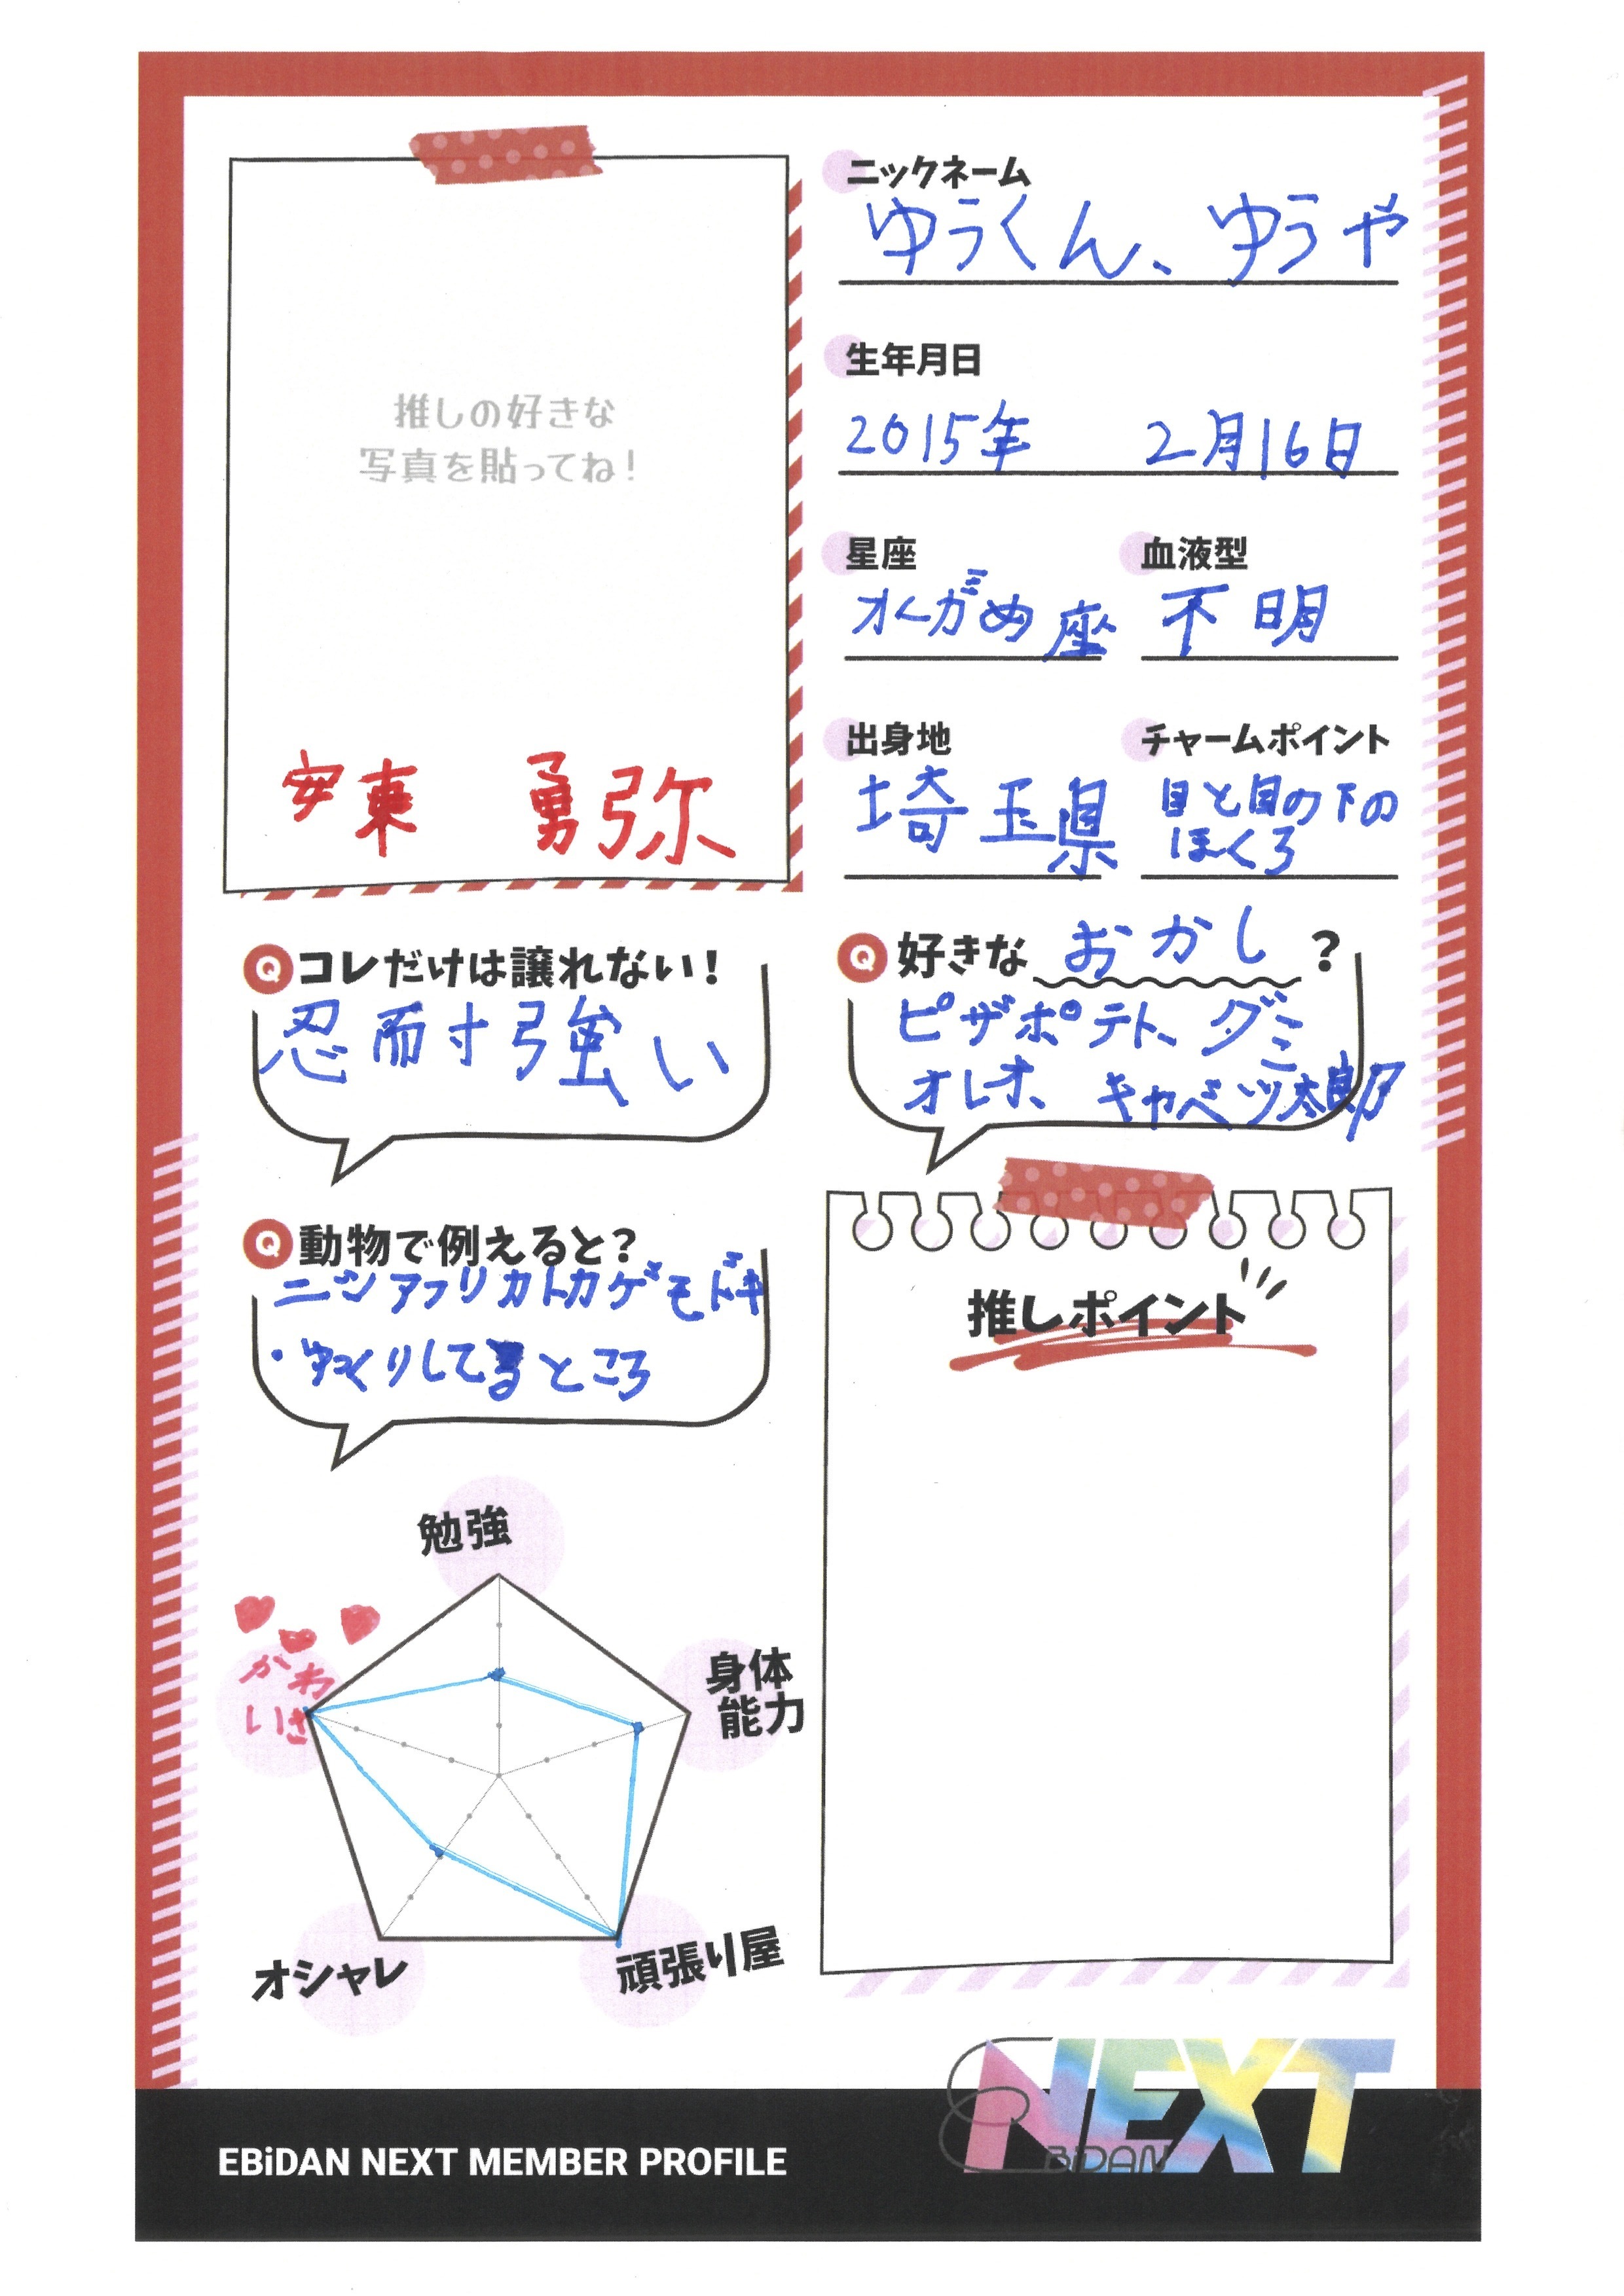 推しの好きな
写真を貼ってね!
安東 勇弥
ニックネーム
ゆうくん、ゆうや
生年月日
2015年 2月16日
星座
水がめ座
血液型
不明
出身地
埼玉県
チャームポイント
目と目の下の
ほくろ
Q コレだけは譲れない!
忍耐強い
Q 好きな おかし ?
ピザポテト、グミ
オレオ、キャベツ太郎
Q 動物で例えると?
ニシアフリカトカゲモドキ
・ゆっくりしてるところ
推しポイント
勉強
身体
能力
頑張り屋
オシャレ
かわ
いさ
EBiDAN NEXT MEMBER PROFILE
NEXT
EBiDAN